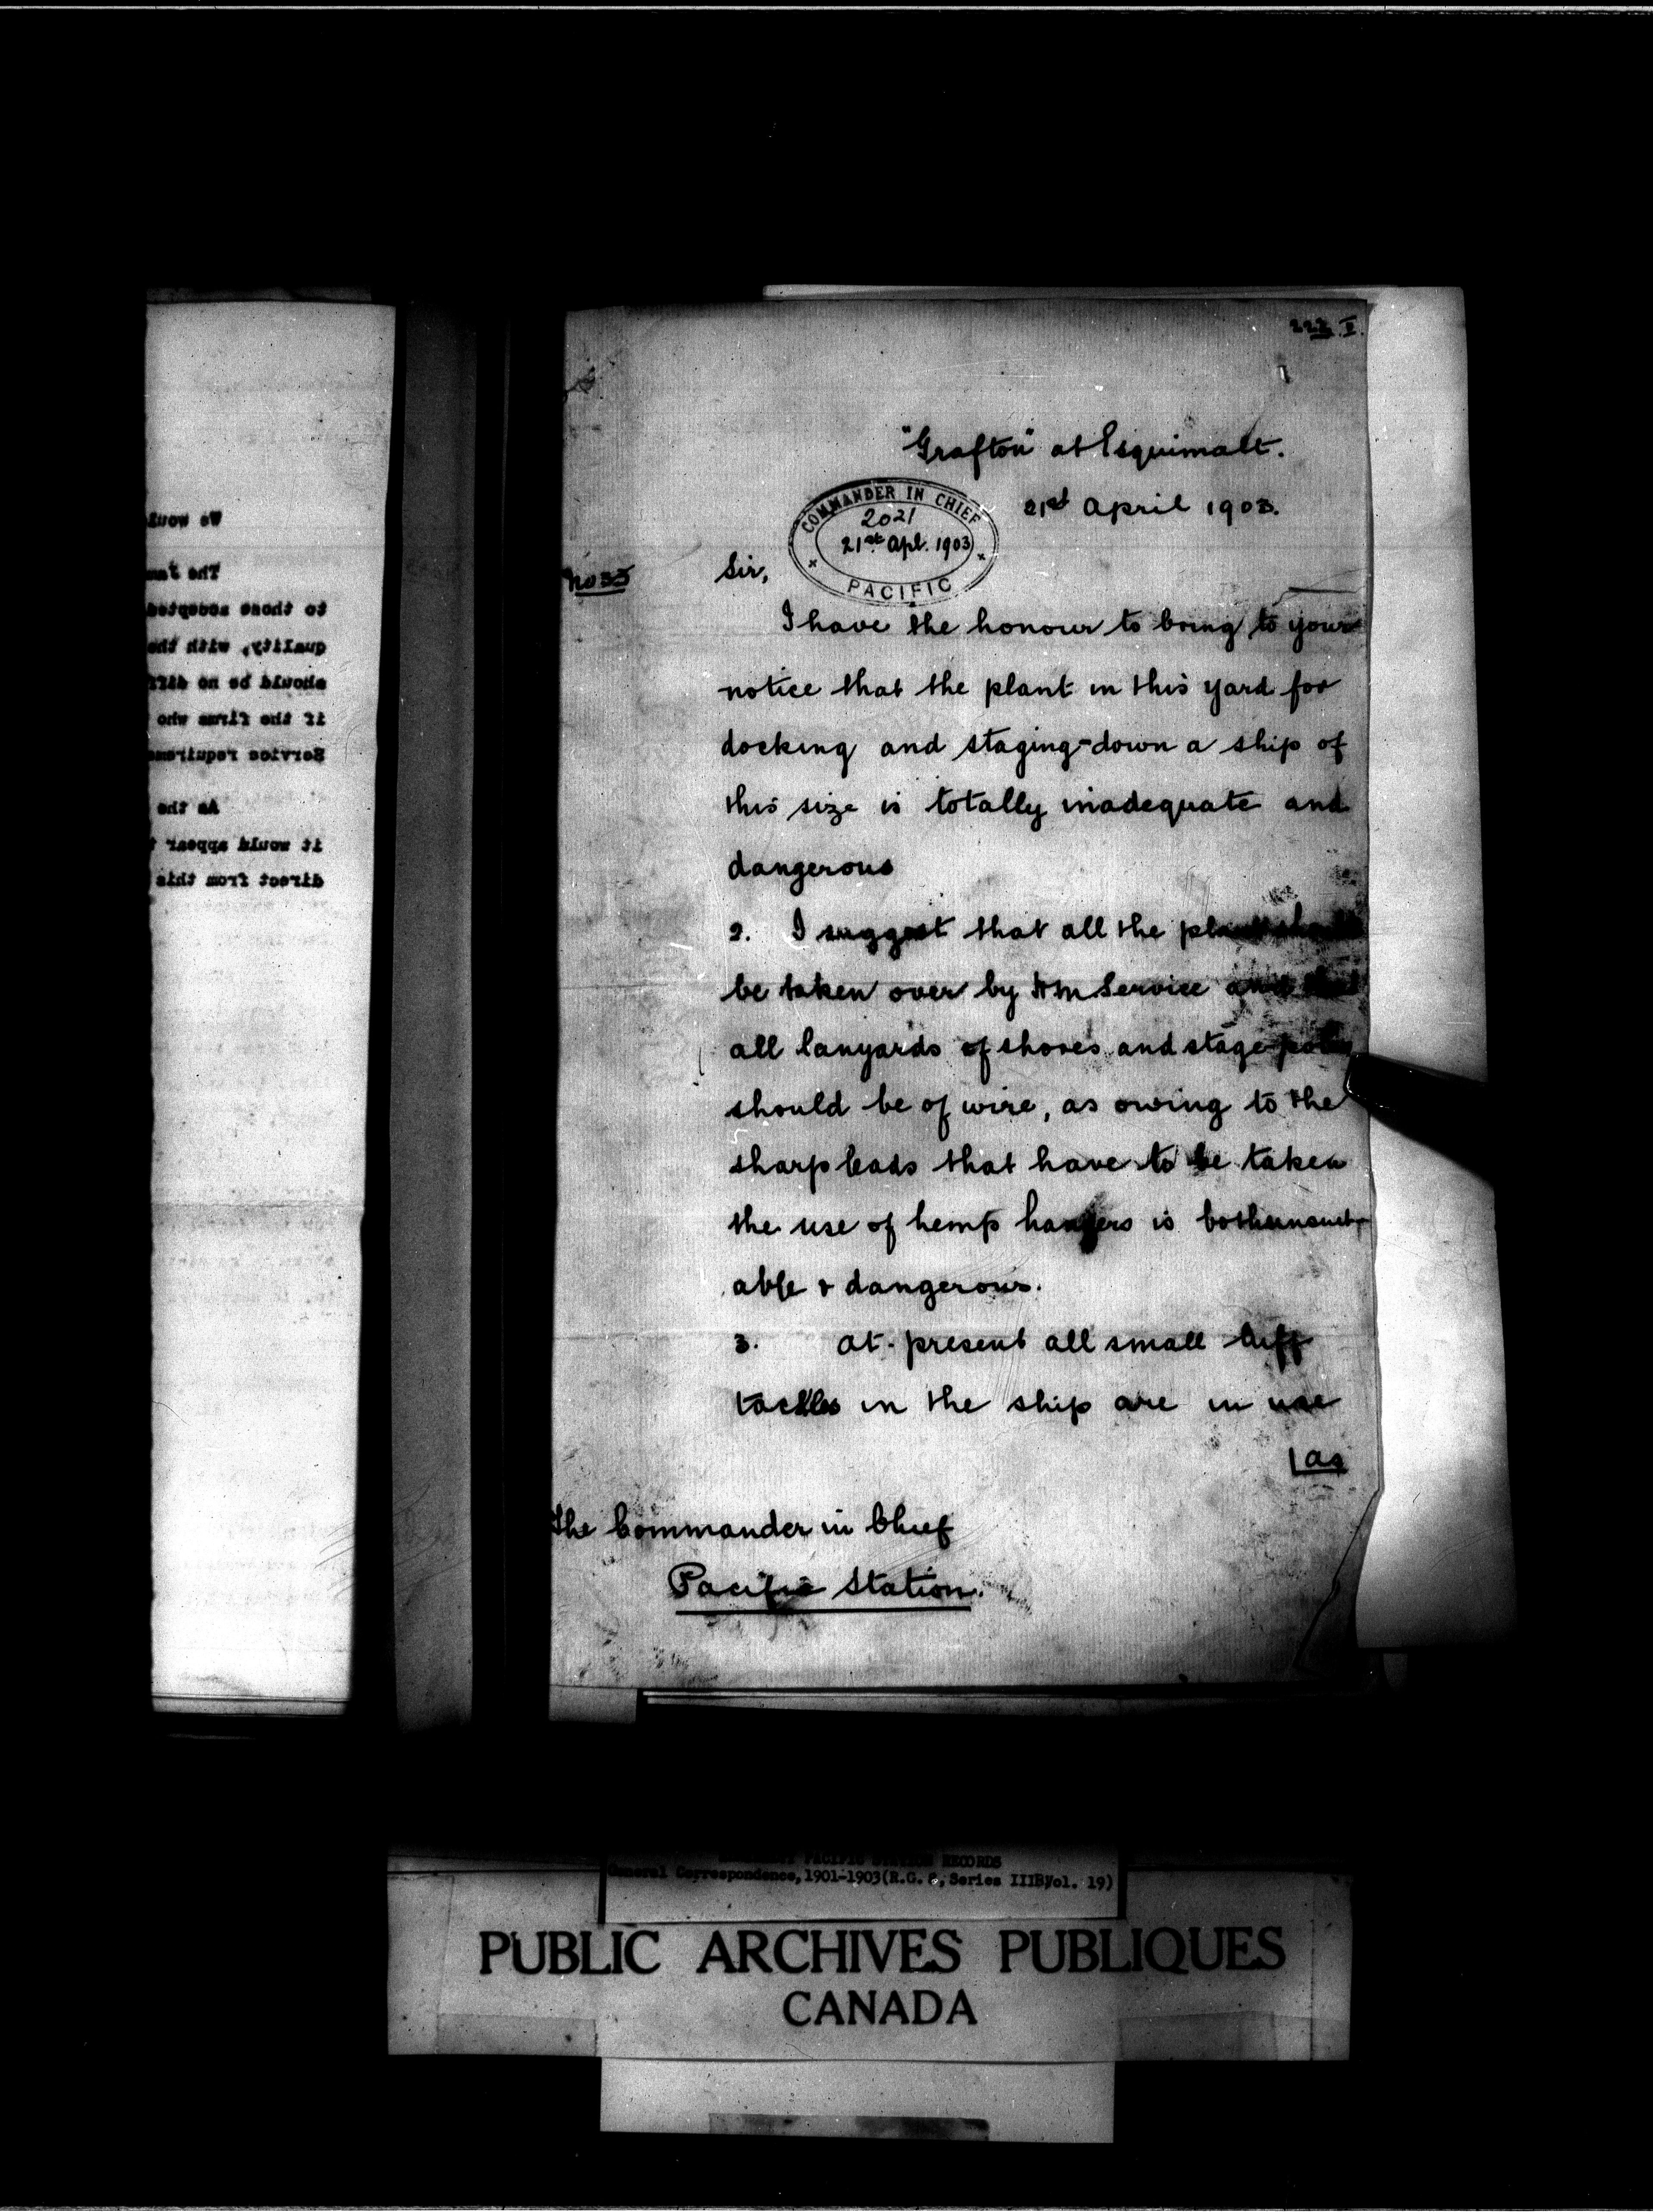 "Grafton" at Esquimalt.
21st April 1903.
COMMANDER IN CHIEF
2021
21st Apl. 1903
PACIFIC
No 33
Sir,
I have the honour to bring to your
notice that the plant in this yard for
docking and staging-down a ship of
this size is totally inadequate and
dangerous
2. I suggest that all the plant should
be taken over by HM Service and that
all lanyards of shores and stage
should be of wire, as owing to the
sharp leads that have to be taken
the use of hemp hawsers is both unsuit-
able & dangerous.
3. At present all small luff
tackles in the ship are in use
/as
The Commander in Chief
Pacific Station.
We woul
The
to those accepted
quality, with the
should be no diff
if the firms who
Service requireme
As the
it would appear
direct from this
PACIFIC STATION RECORDS
General Correspondence, 1901-1903 (R.G. 8, Series IIIB, Vol. 19)
PUBLIC ARCHIVES PUBLIQUES
CANADA